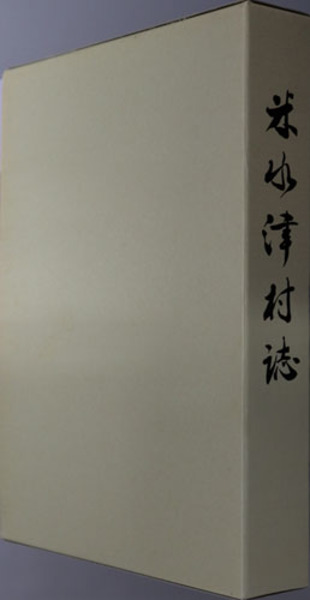 米水津村誌